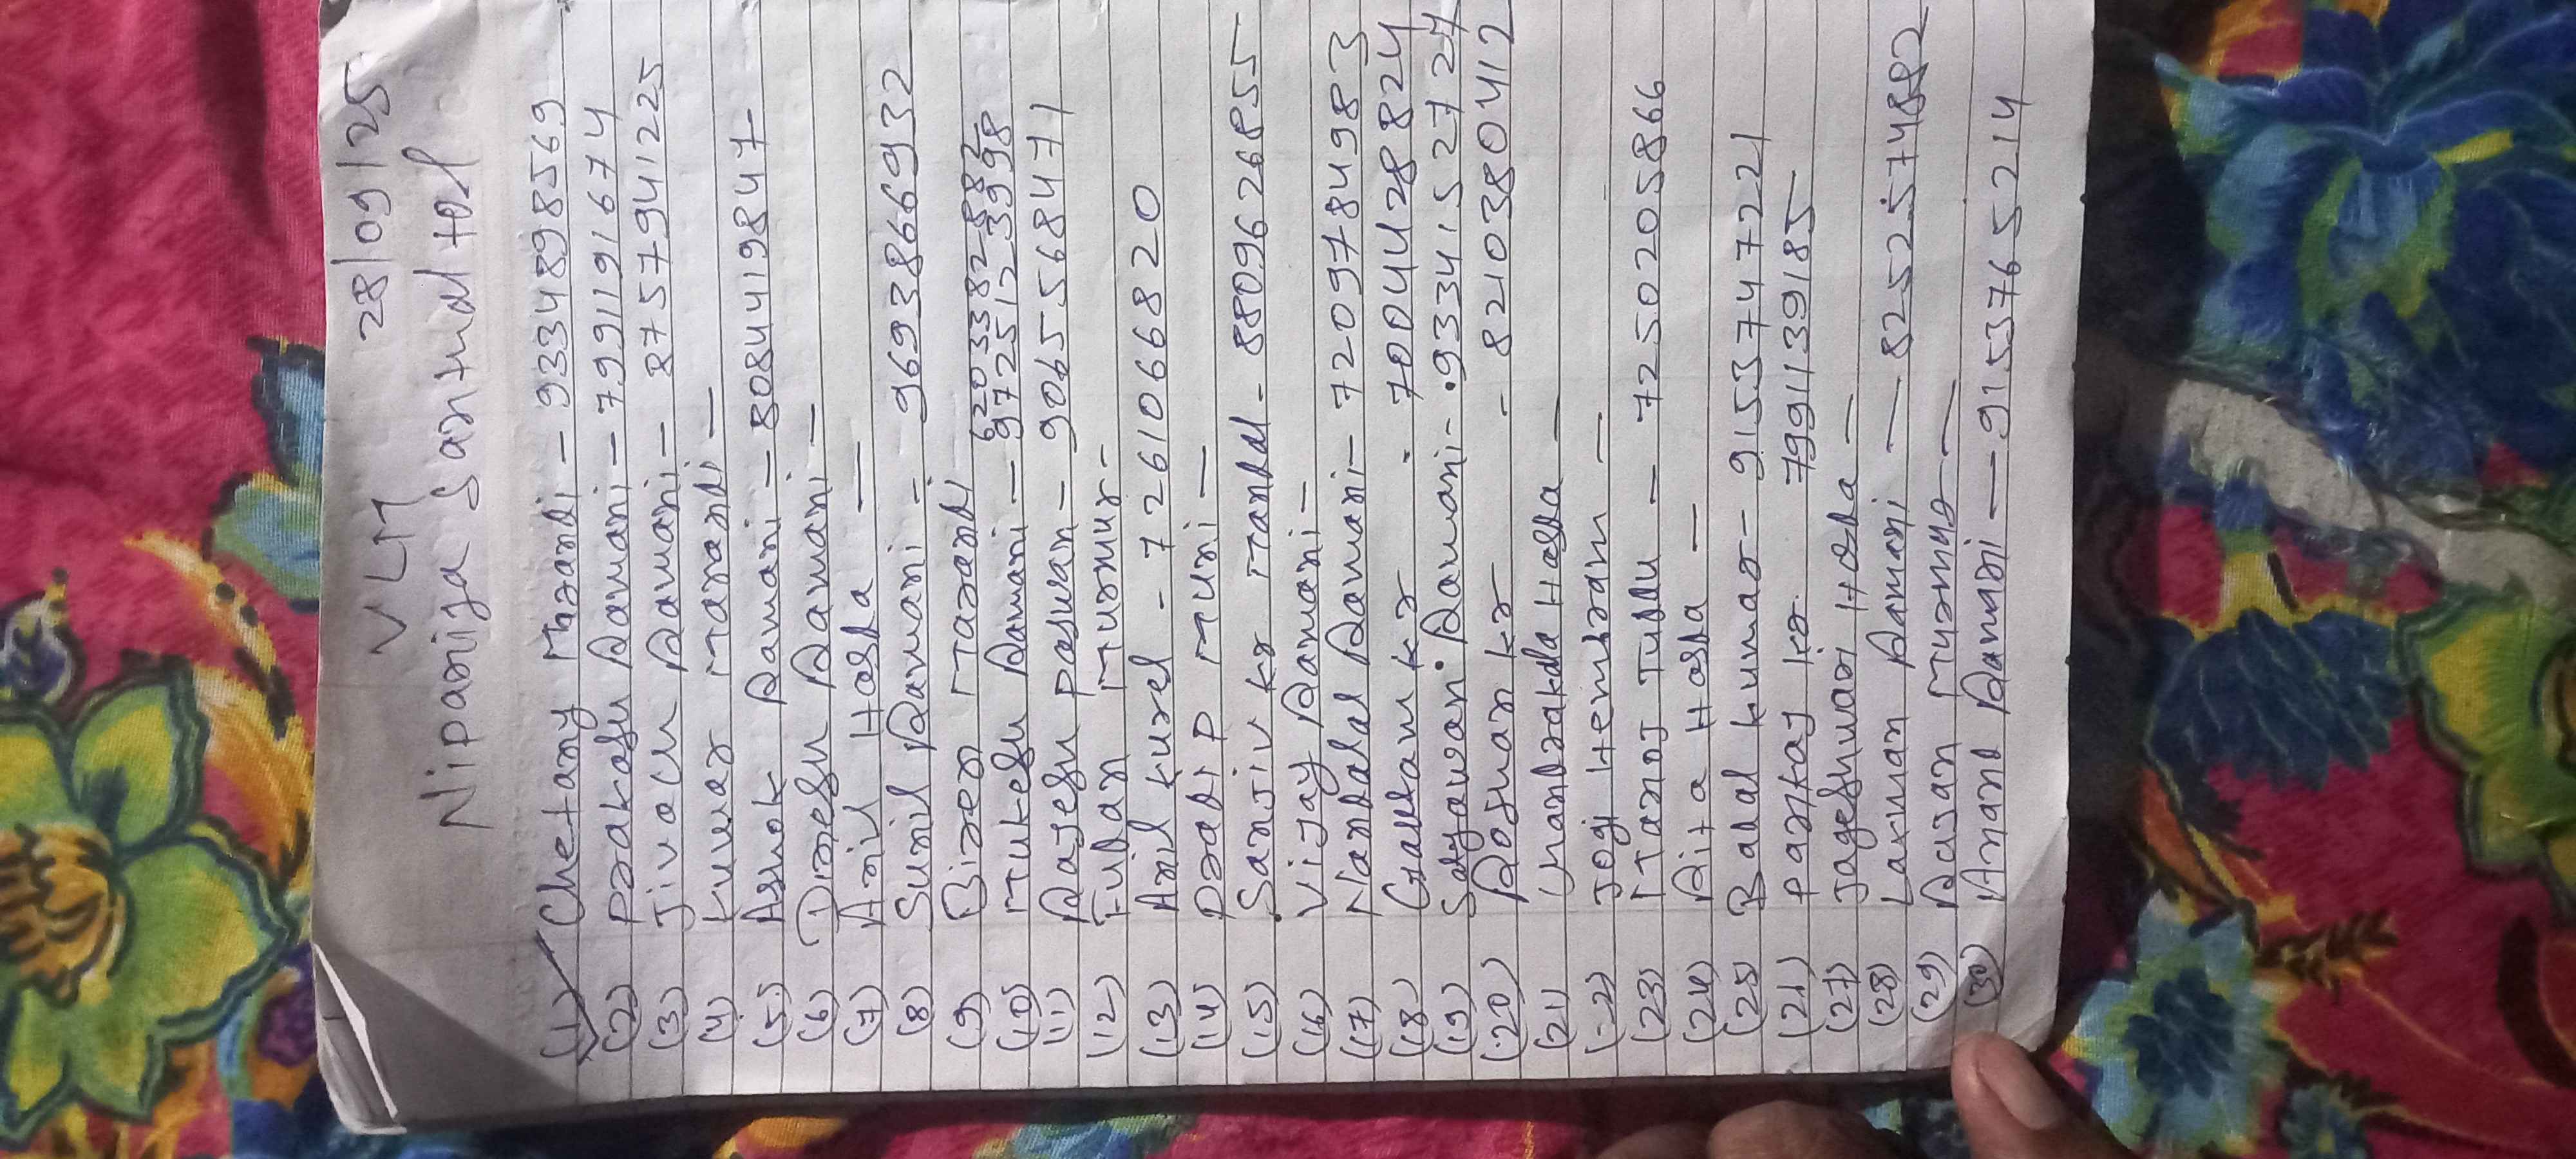 VLM 28/09/25
Nipaniya Santhal tol
(1) Chetany Marandi - 9334898569
(2) Prakash Rawani - 7991191674
(3) Jivach Rawani - 8757941225
(4) Kuwar Marandi -
(5) Ashok Rawani - 8084419847
(6) Dinesh Rawani -
(7) Anil Hasda -
(8) Sunil Rawani - 9693866932
(9) Biren Marandi 6203382882
(10) Mukesh Rawani - 9725123998
(11) Rajesh Paswan - 9065568471
(12) Fudan Murmur -
(13) Anil Kurel - 7261066820
(14) Pradip Muni -
(15) Sanjiv Kr Mandal - 8809626855
(16) Vijay Rawani -
(17) Nandalal Rawani - 7209784983
(18) Gautam Kr - 7004428824
(19) Satyawan Rawani - 9334152727
(20) Roshan Kr - 8210380412
(21) Chandrakala Hasda -
(22) Jogi Hembram -
(23) Manoj Tuddu - 7250205866
(24) Rita Hasda -
(25) Badal Kumar - 9153747221
(21) Pankaj Kr. 7991139185
(27) Jageshwari Hasda -
(28) Laxman Rawani - 8252574882
(29) Rasan Murmur -
(30) Anand Rawani - 9153765214